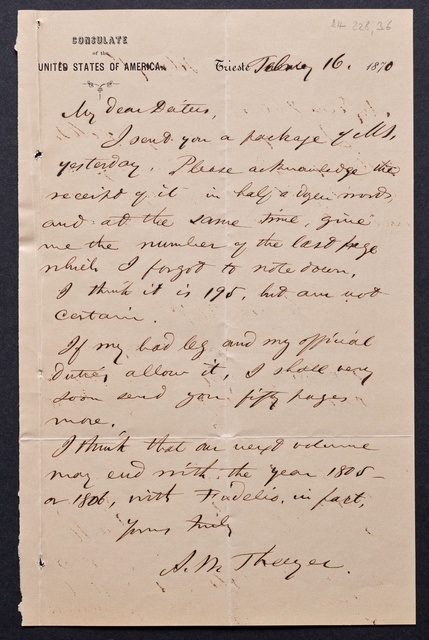 84 228, 36
CONSULATE
of the
UNITED STATES OF AMERICA.
Trieste February 16. 1870
My dear Deiters,
I send you a package of MS.
yesterday. Please acknowledge the
receipt of it in half a dozen words,
and at the same time, give
me the number of the last page
which I forgot to note down.
I think it is 195, but am not
certain.
If my bad leg and my official
duties, allow it, I shall very
soon send you fifty pages
more.
I think that our next volume
may end with the year 1805-
or 1806, with Fidelio, in fact,
Yours truly
A. W. Thayer.